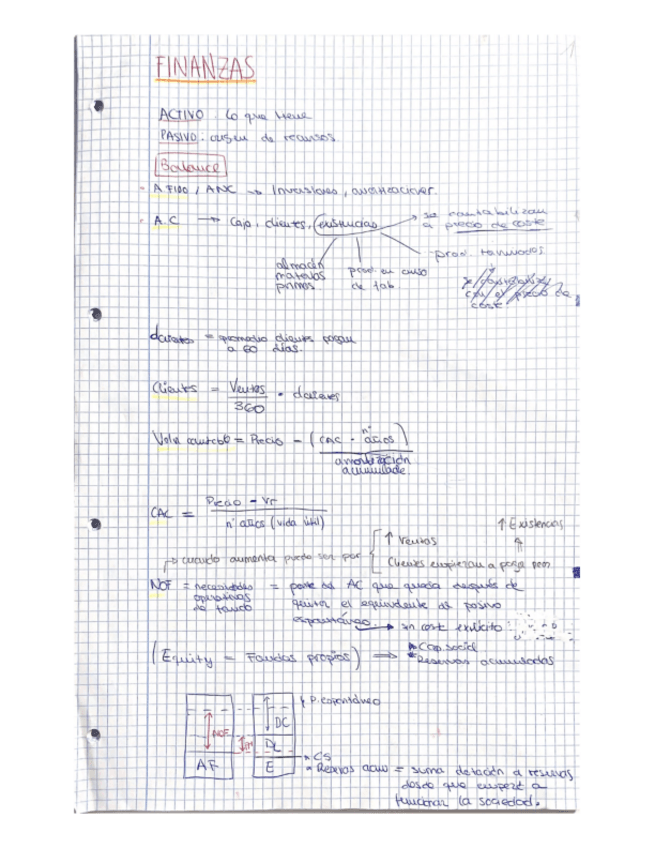 1
FINANZAS
ACTIVO: lo que tiene
PASIVO: origen de recursos.
Balance
- A FIJO / ANC → Inversiones,
- A.C → Caja, clientes, existencias → se contabilizan a precio de coste
prod. terminados
almacén materias primas
prod. en curso de fab
= promedio clientes pagan
a 60 días.
Clientes = Ventas / 360 ·
Valor contable = Precio - (CAC · nº años)
amortización acumulada
CAC = Precio - Vr / nº años (vida útil)
↑ Existencias
↑ Ventas
→ cuando aumenta puede ser por
Clientes empiezan a pagar peor
NOF = necesidades operativas de fondo = parte del AC que queda después de
quitar el equivalente de pasivo
espontáneo. → sin coste explícito
(Equity = Fondos propios) ⇒ * Cap social
* Reservas acumuladas
P. espontáneo
DC
NOF
FM
DL
AF
E
CS
Reservas acum = suma dotación a reservas
desde que empezó a
funcionar la sociedad.